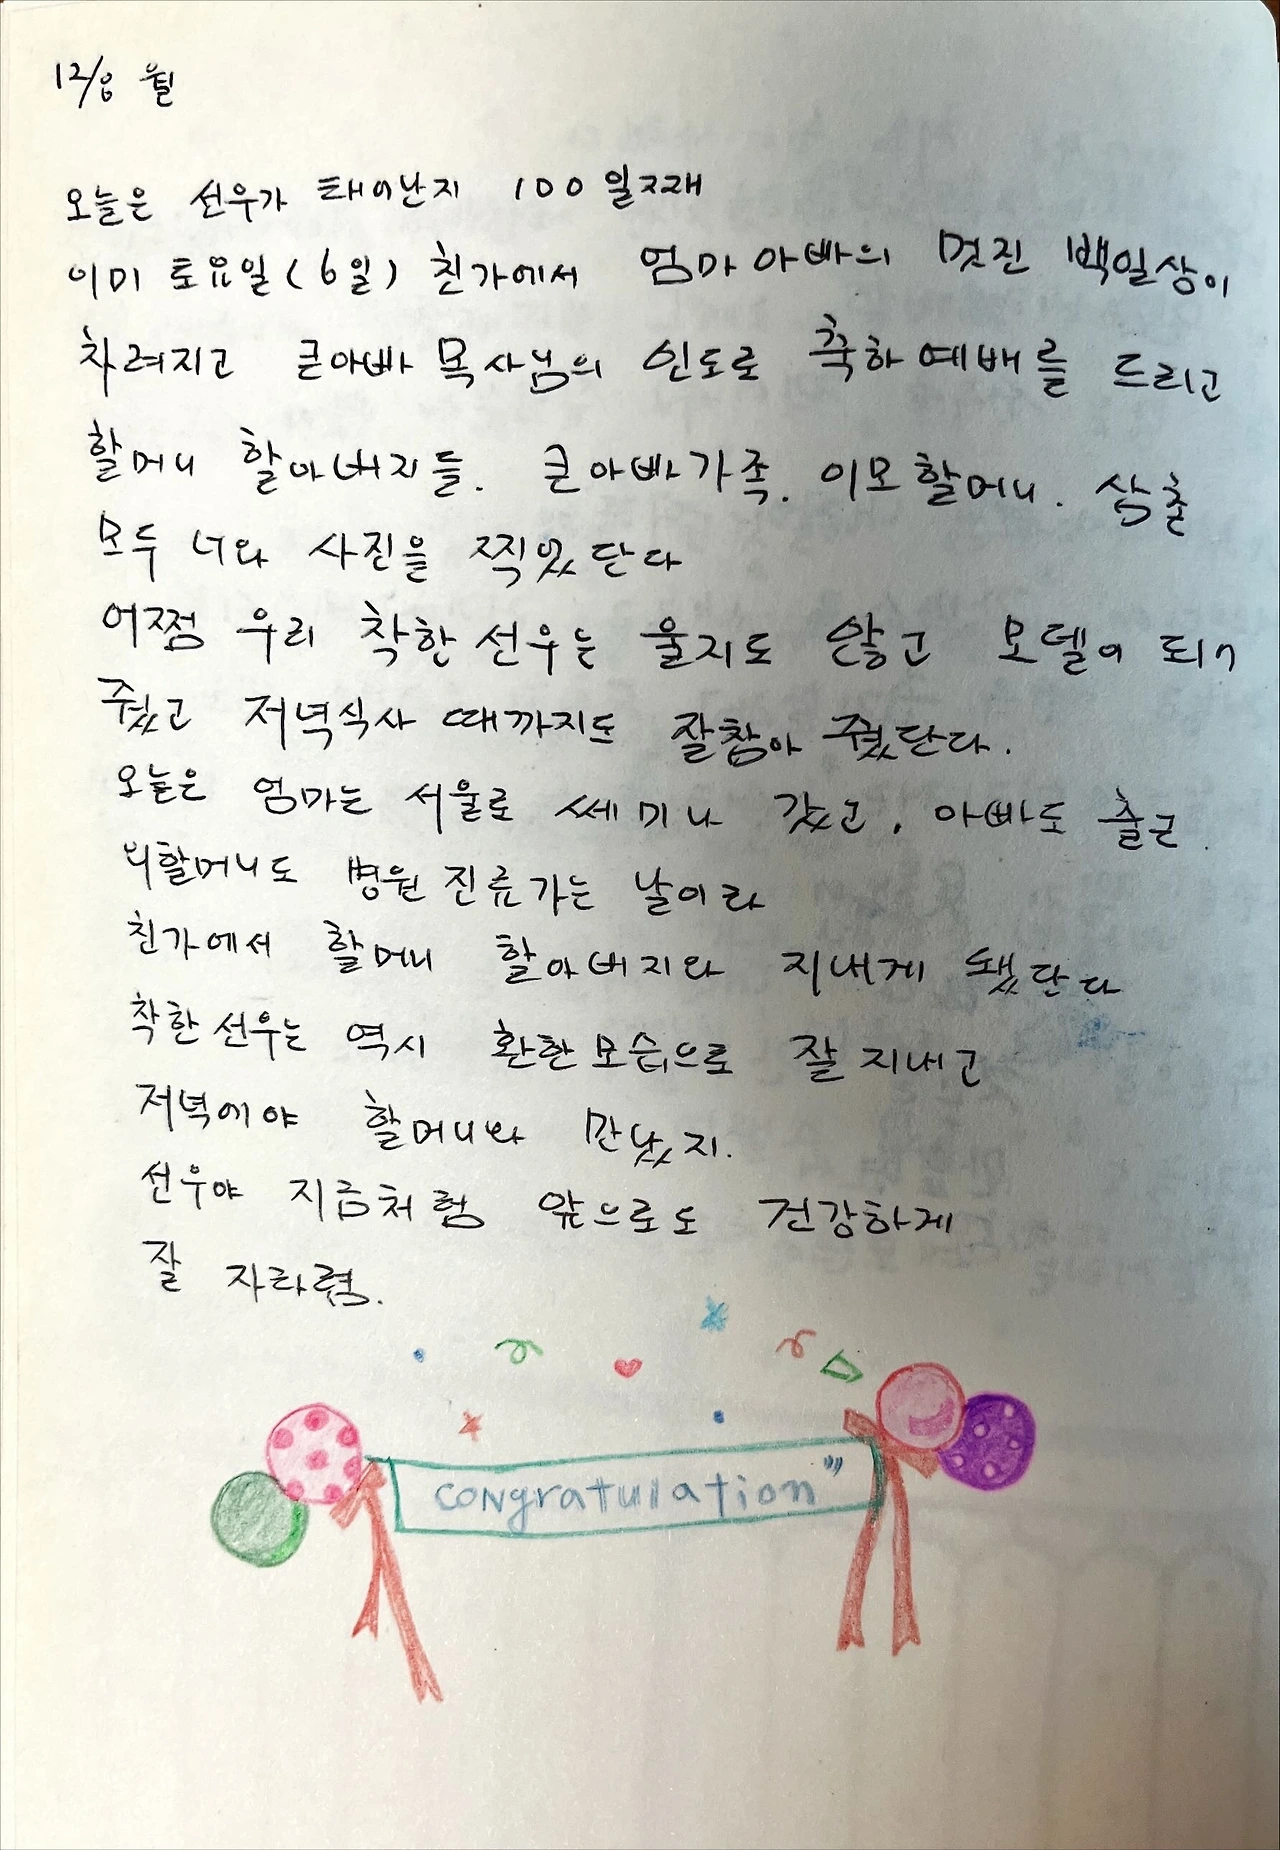 12/8 월
오늘은 선우가 태어난지 100일째
이미 토요일(6일) 친가에서 엄마아빠의 멋진 백일상이
차려지고 큰아빠 목사님의 인도로 축하예배를 드리고
할머니 할아버지들. 큰아빠가족. 이모할머니. 삼촌
모두 너와 사진을 찍었단다
어쩜 우리 착한선우는 울지도 않고 모델이 되어
줬고 저녁식사 때까지도 잘참아 줬단다.
오늘은 엄마는 서울로 쎄미나 갔고, 아빠도 출근
외할머니도 병원진료가는 날이라
친가에서 할머니 할아버지와 지내게 됐단다
착한선우는 역시 환한모습으로 잘지내고
저녁에야 할머니와 만났지.
선우야 지금처럼 앞으로도 건강하게
잘 자라렴.
congratulation"